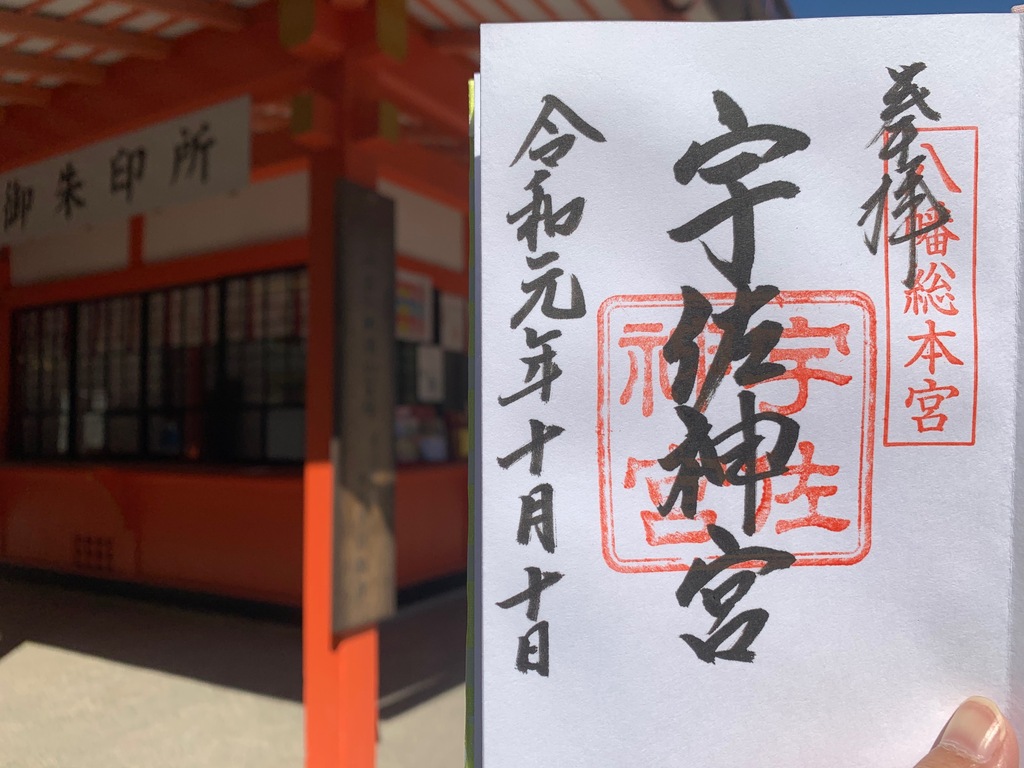 御朱印所
奉拝
八幡総本宮
宇佐神宮
宇佐神宮
令和元年十月十日